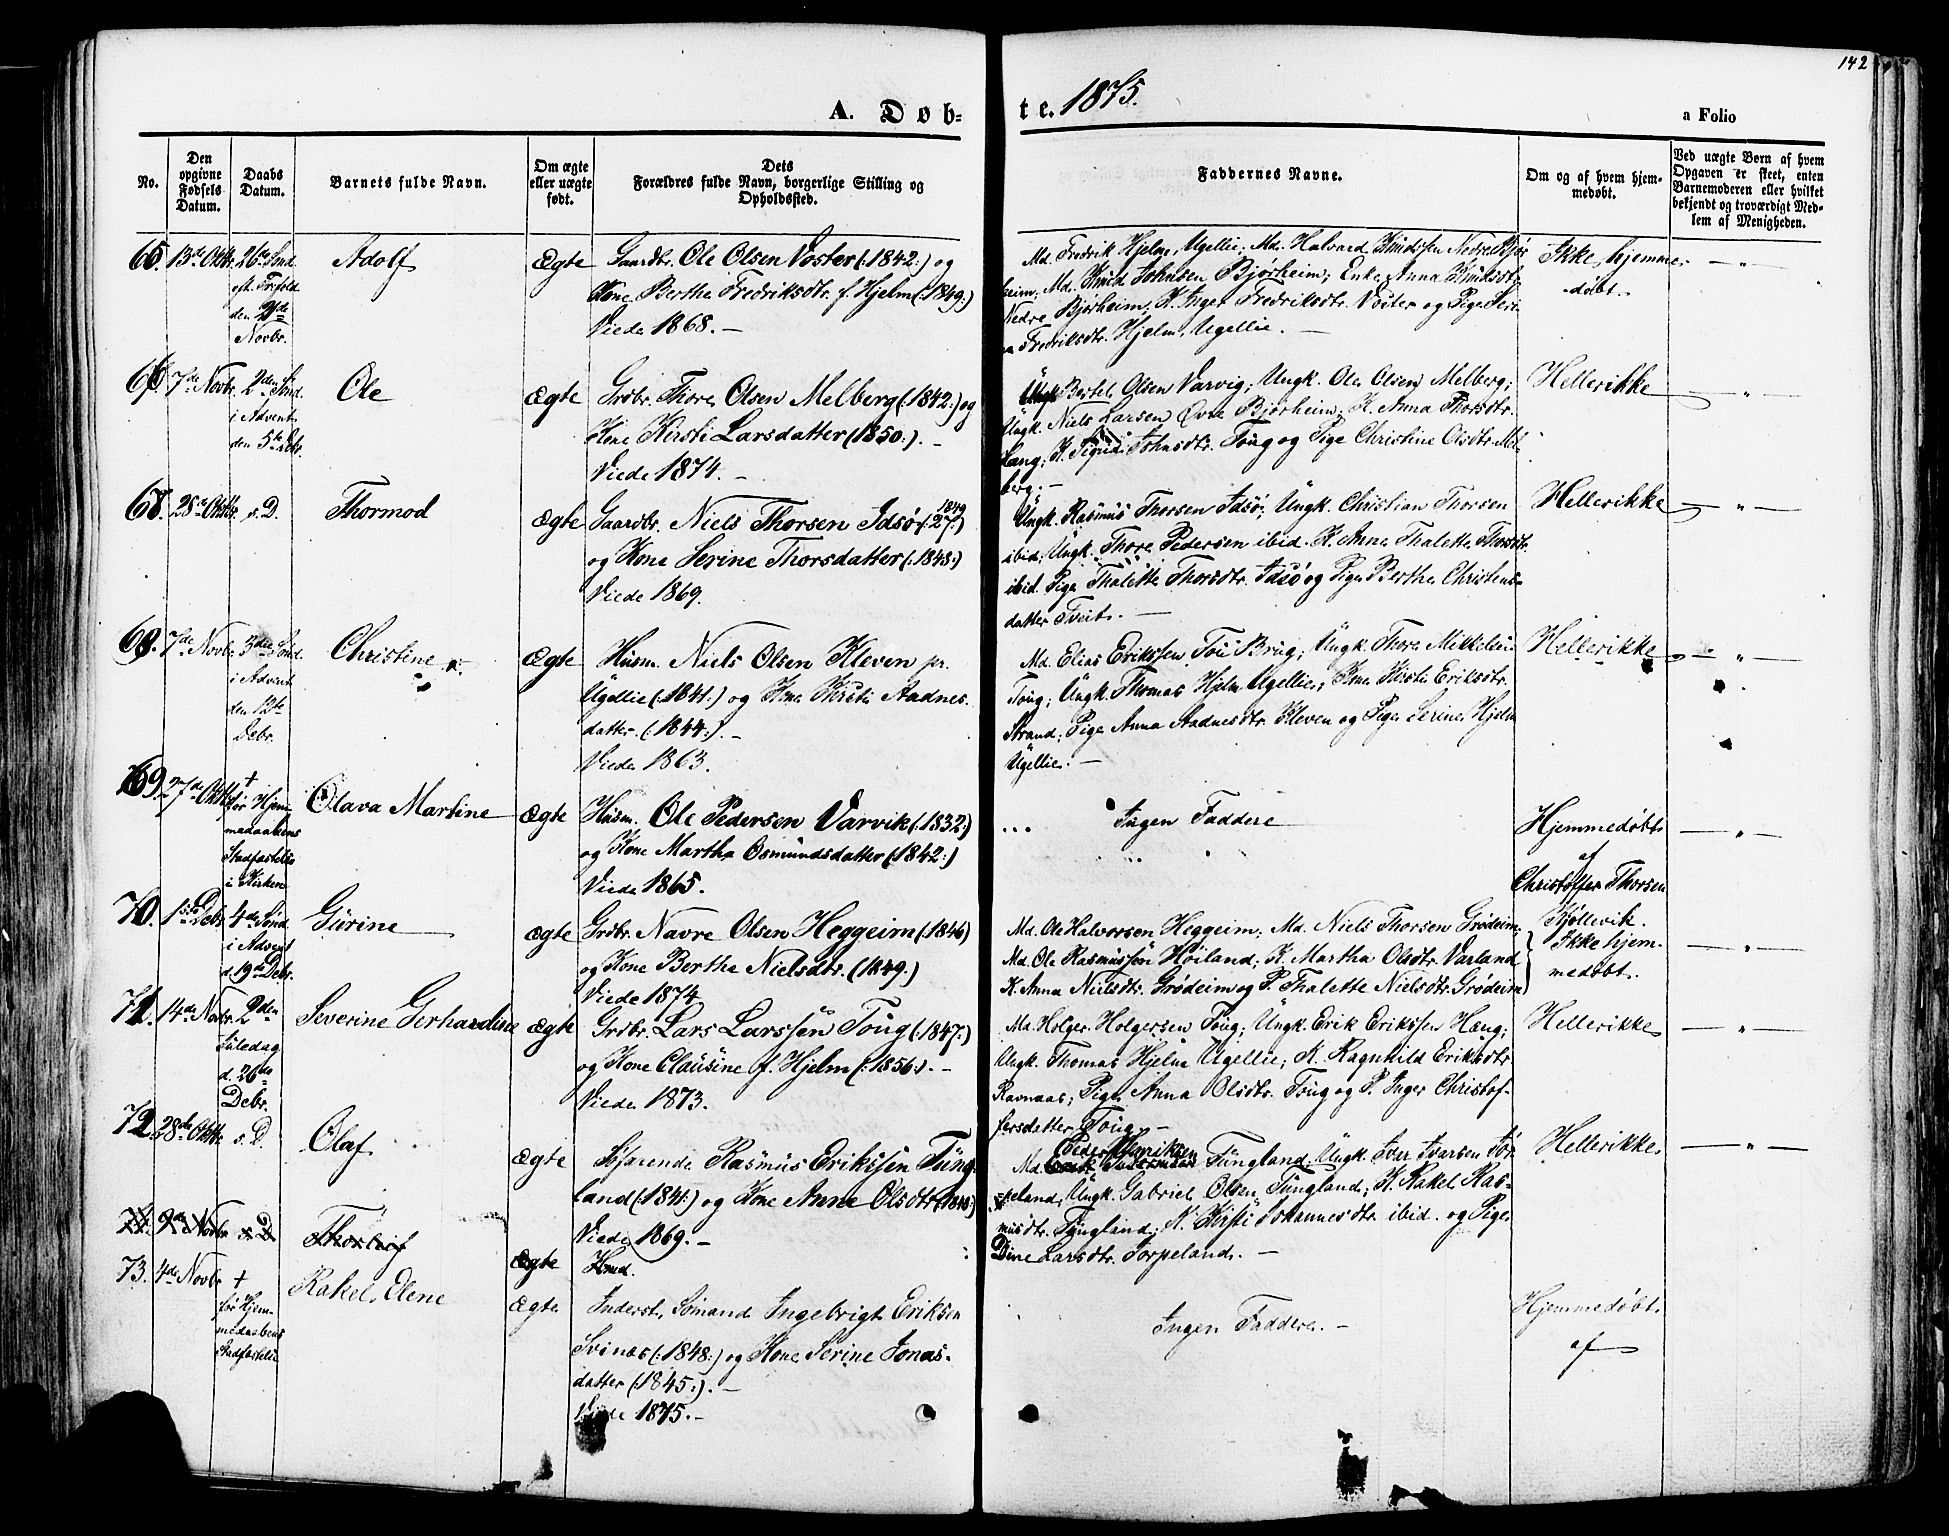 142
A. Døb-
te. 1875.
a Folio
No.
Den opgivne Fødsels Datum.
Daabs Datum.
Barnets fulde Navn.
Om ægte eller uægte født.
Dets Forældres fulde Navn, borgerlige Stilling og Opholdssted.
Faddernes Navne.
Om og af hvem hjemmedøbt.
Ved uægte Børn af hvem Opgaven er skeet, enten Barnemoderen eller hvilket bekjendt og troværdigt Medlem af Menigheden.
65. 13de Oktbr. 26de Sønd.
eft. Trefold.
den
Novbr.
Adolf
Ægte
Gaardbr. Ole Olsen Voster (:1842:) og
Kone Berthe Fredriksdtr. f. Hjelm (:1849:)
Viede 1868. —
Md. Fredrik Hjelm, Ugellie; Md. Halvard Knudssen Nedre Bjør-
heim; Md. Knud Johnsen Bjørheim; Enke Anna Knudsdtr.
Nedre Bjørheim; K. Inger Fredriksdtr. Voster og Pige Seri-
na Fredriksdtr. Hjelm, Ugellie. —
Ikke hjemme-
døbt.
— " —
66. 7de Novbr. 2den Sønd.
i Advent
den 5te Debr.
Ole
Ægte
Grdbr. Thore Olsen Melberg (:1842:) og
Kone Kirsti Larsdatter (:1850:). —
Viede 1874. —
Ungk. Bertel Olsen Varvig; Ungk. Ole Olsen Melberg;
Ungk. Niels Larsen Øvre Bjørheim; K. Anna Thorsdtr.
Hæng; K. Sigrid Johnsdtr. Toug og Pige Christine Olsdtr. Mel-
berg. —
Hellerikke
— " —
67. 28de Oktbr. s. D.
Thormod
Ægte
1849
Gaardbr. Niels Thorsen Idsø (:27:)
og Kone Serine Thorsdatter (:1848:)
Viede 1869.
Ungk. Rasmus Thorsen Idsø; Ungk. Christian Thorsen
ibid; Ungk. Thore Pedersen ibid. K. Anne Thalette Thorsdtr.
ibid. Pige Thalette Thorsdtr. Idsø og Pige Berthe Christens-
datter Tveit. —
Hellerikke
— " —
68. 7de Novbr. 3die Sønd.
i Advent
den 12te
Debr.
Christine
Ægte
Husm. Niels Olsen Kleven pr.
Ugellie (:1841:) og Kone Kirsti Aadnes-
datter. (:1844:). —
Viede 1863.
Md. Elias Erikssen Tou Brug; Ungk. Thore Mikkelsen
Toug; Ungk. Thomas Hjelm Ugellie; Kone Kisti Eriksdtr.
Strand; Pige Anna Aadnesdtr. Kleven og Pige Serine Hjelm
Ugellie. —
Hellerikke
— " —
69. 27de Oktbr. +
før Hjem-
medaabens
Stadfæstelse
i Kirken
Olava Martine
Ægte
Husm. Ole Pedersen Varvik (:1832:)
og Kone Martha Osmundsdatter (:1842:)
Viede 1865.
Ingen Faddere
Hjemmedøbt
af
Christoffer Thorsen
Kjøllevik.
— " —
70. 1ste Debr. 4de Sønd.
i Advent
d. 19de Debr.
Gurine
Ægte
Grdbr. Navre Olsen Heggeim (:1846)
og Kone Berthe Nielsdtr. (1849:)
Viede 1874
Md. Ole Halvorsen Heggeim; Md. Niels Thorsen Grødeim;
Md. Ole Rasmussøn Høiland; K. Martha Olsdtr. Varland
K. Anna Nielsdtr. Grødeim og P. Thalette Nielsdtr. Grødeim
Ikke hjem-
medøbt.
— " —
71. 14de Novbr. 2den
Juledag
d. 26de
Debr.
Severine Gerhardine
Ægte
Grdbr. Lars Larssøn Toug (:1847:)
og Kone Clausine f. Hjelm (:1856:). —
Viede 1873.
Md. Holger Holgersen Toug; Ungk. Erik Erikssen Hæng;
Ungk. Thomas Hjelm Ugellie; K. Ragnhild Eriksdtr.
Ravnaas; Pige Anna Olsdtr. Toug og P. Inger Christof-
fersdatter Toug. —
Hellerikke
— " —
72. 28de Oktbr. s. D.
Olaf
Ægte
Søfarende Rasmus Erikssen Tung-
land (:1841:) og Kone Anne Olsdtr. (:1848:)
Viede 1869. —
Peder Henriksen
Md. Tungland; Ungk. Iver Ivarsen Tør-
peland; Ungk. Gabriel Olsen Tungland; K. Rakel Ras-
musdtr. Tungland; K. Kirsti Johannesdtr. ibid. og Pige
Dine Larsdtr. Torpeland. —
Hellerikke
— " —
Novbr. s. D
Thorleif
Ægte
Husd.
73. 4de Novbr. +
før Hjem-
medaabens
Stadfæstelse
Rakel Elene
Ægte
Inderst, Sømand Ingebrigt Eriksen
Svinæs (:1848:) og Kone Serine Jonas-
datter (:1845:). —
Viede 1875. —
Ingen Faddere. —
Hjemmedøbt
af